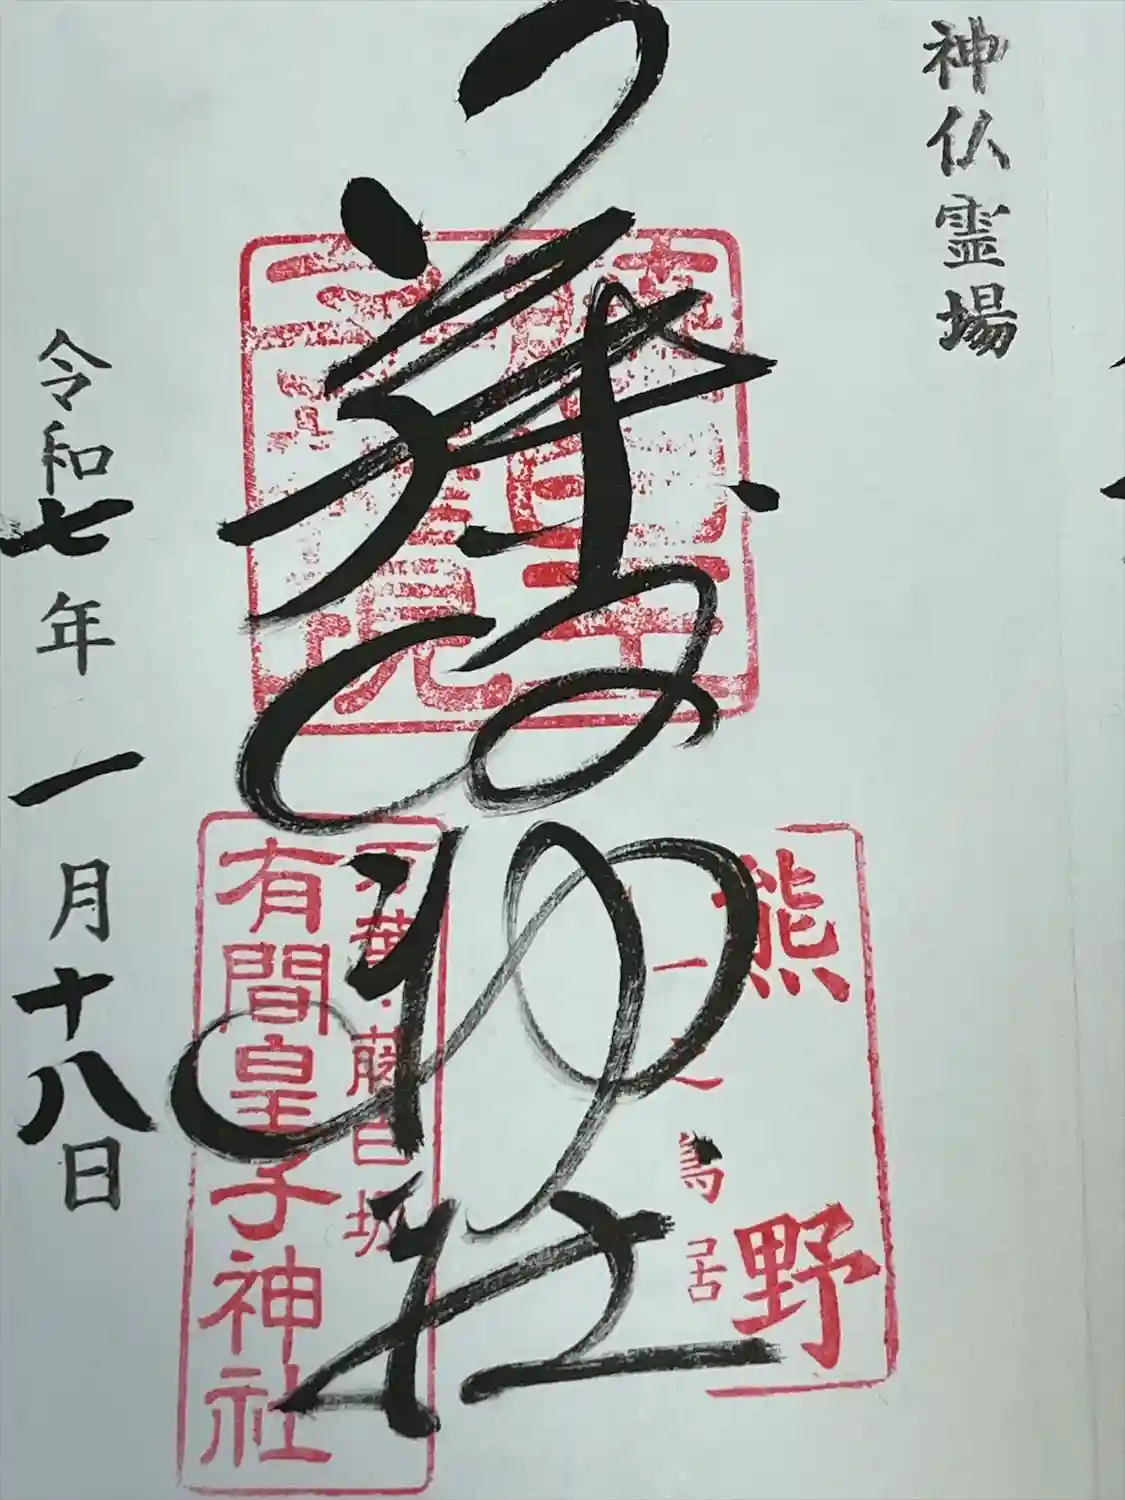 神仏霊場
藤白神社
熊野
一之鳥居
万葉・藤白坂
有間皇子神社
令和七年一月十八日